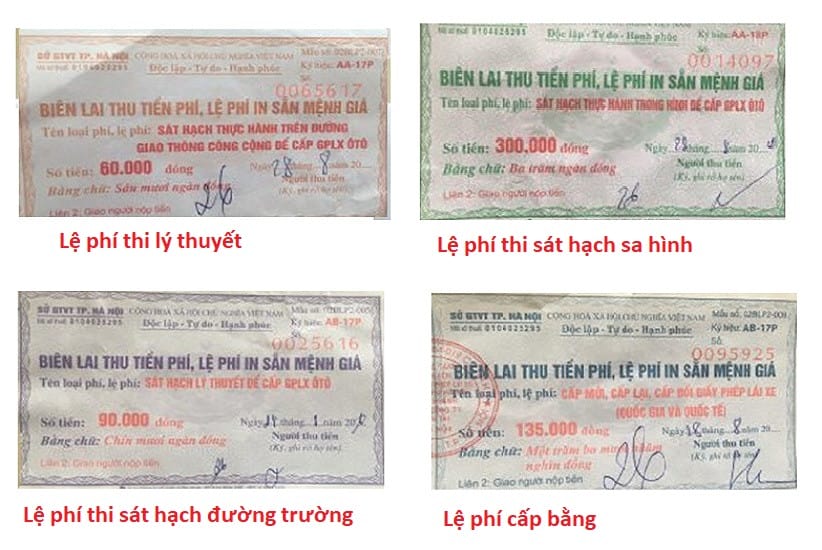 SỞ GTVT TP. HÀ NỘI
Mã số thuế 0104026295
CỘNG HOÀ XÃ HỘI CHỦ NGHĨA VIỆT NAM
Độc lập - Tự do - Hạnh phúc
Mẫu số: 02BLP2-001
Ký hiệu: AA-17P
Số:
0065617
BIÊN LAI THU TIỀN PHÍ, LỆ PHÍ IN SẴN MỆNH GIÁ
Tên loại phí, lệ phí: SÁT HẠCH THỰC HÀNH TRÊN ĐƯỜNG
GIAO THÔNG CÔNG CỘNG ĐỂ CẤP GPLX ÔTÔ
Số tiền: 60.000 đồng
Ngày 28 tháng 8 năm 20
Bảng chữ: Sáu mươi ngàn đồng
Người thu tiền
(Ký, ghi rõ họ tên)
Liên 2: Giao người nộp tiền
Lệ phí thi lý thuyết
Mã số thuế 0104026295
Độc lập - Tự do - Hạnh phúc
Ký hiệu: AA-18P
Số:
0014097
BIÊN LAI THU TIỀN PHÍ, LỆ PHÍ IN SẴN MỆNH GIÁ
Tên loại phí, lệ phí: SÁT HẠCH THỰC HÀNH TRONG HÌNH ĐỂ CẤP GPLX ÔTÔ
Số tiền: 300.000 đồng
Ngày 28 tháng 8 năm 20
Bằng chữ: Ba trăm ngàn đồng
Người thu tiền
(Ký, ghi rõ họ tên)
Liên 2: Giao người nộp tiền
Lệ phí thi sát hạch sa hình
SỞ GTVT TP. HÀ NỘI
Mã số thuế 0104026295
CỘNG HOÀ XÃ HỘI CHỦ NGHĨA VIỆT NAM
Độc lập - Tự do - Hạnh phúc
Ký hiệu: AB-17P
Số:
0025616
BIÊN LAI THU TIỀN PHÍ, LỆ PHÍ IN SẴN MỆNH GIÁ
Tên loại phí, lệ phí: SÁT HẠCH LÝ THUYẾT ĐỂ CẤP GPLX ÔTÔ
Số tiền: 90.000 đồng
Bằng chữ: Chín mươi ngàn đồng
Người thu tiền
(Ký, ghi rõ họ tên)
Liên 2: Giao người nộp tiền
Lệ phí thi sát hạch đường trường
SỞ GTVT TP. HÀ NỘI
Mã số thuế 0104026295
CỘNG HOÀ XÃ HỘI CHỦ NGHĨA VIỆT NAM
Độc lập - Tự do - Hạnh phúc
Ký hiệu: AB-17P
Số:
0095925
BIÊN LAI THU TIỀN PHÍ, LỆ PHÍ IN SẴN MỆNH GIÁ
Tên loại phí, lệ phí: CẤP MỚI, CẤP LẠI, CẤP ĐỔI GIẤY PHÉP LÁI XE
(QUỐC GIA VÀ QUỐC TẾ)
Số tiền: 135.000 đồng
Ngày 28 tháng 8 năm 20
Bằng chữ: Một trăm ba mươi năm
nghìn đồng
Người thu tiền
(Ký, ghi rõ họ tên)
Liên 2: Giao người nộp tiền
Lệ phí cấp bằng